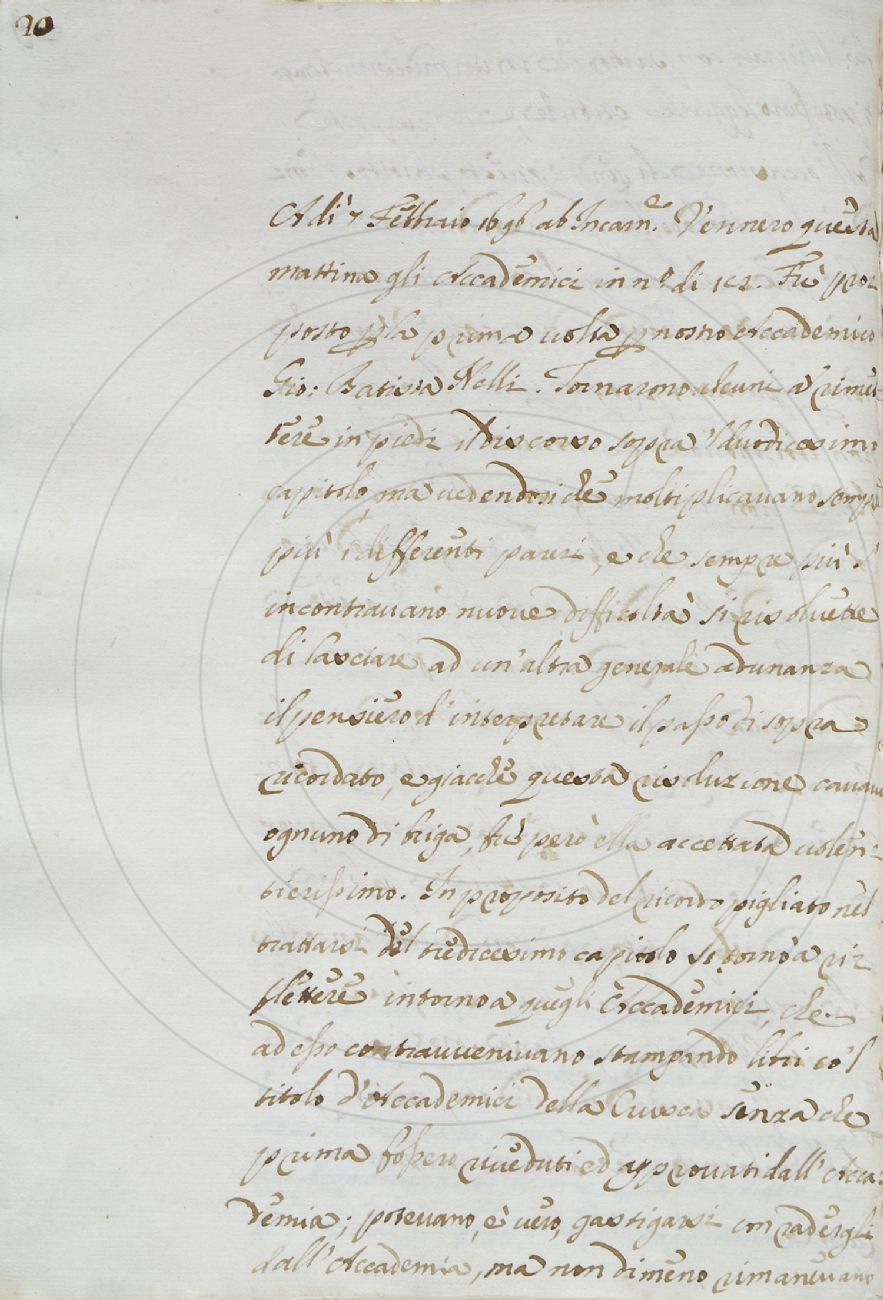 20
Adì 7 Febbraio 1696 ab Incarn.e Vennero questa
mattina gli Accademici in n.o di 12. Fù pro=
posto p la prima volta p nostro Accademico
Gio: Batista Nelli. Tornarono alcuni a rimet=
tere in piedi il discorso sopra 'l duodicesimo
capitolo, ma vedendosi che moltiplicavano sempre
più i differenti pareri, e che sempre più s'
incontravano nuove difficoltà si risolvette
di lasciare ad un'altra generale adunanza
il pensiero d'interpretare il passo di sopra
ricordato, e giacchè questa risoluzione cavava
ognuno di briga, fù però ella accettata volen=
tierissimo. In proposito del ricordo pigliato nel
trattarsi del tredicesimo capitolo si tornò a ri=
flettere intorno a quegli Accademici, che
ad esso contravvenivano stampando libri co 'l
titolo d'Accademici della Crusca senza che
prima fossero riveduti ed approvati dall'Acca=
demia; potevano, è vero, gastigarsi con radergli
dall'Accademia, ma non dimeno rimanevano